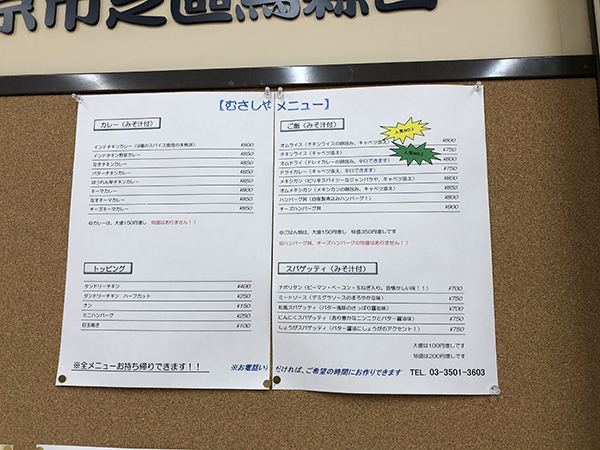 京市之區烏森口
【むさしやメニュー】
カレー（みそ汁付）
インドチキンカレー（9種のスパイス使用の本格派） ¥800
インドチキン野菜カレー ¥850
なすチキンカレー ¥850
バターチキンカレー ¥850
ほうれん草チキンカレー ¥850
キーマカレー ¥800
なすキーマカレー ¥850
チーズキーマカレー ¥850
※カレーは、大盛150円増し 特盛はありません！！
トッピング
タンドリーチキン ¥400
タンドリーチキン ハーフカット ¥250
ナン ¥150
ミニハンバーグ ¥250
目玉焼き ¥100
※全メニューお持ち帰りできます！！
ご飯（みそ汁付）
人気NO.1
オムライス（チキンライスの卵包み、キャベツ添え） ¥800
チキンライス（キャベツ添え）
人気NO.2
オムドライ（ドライカレーの卵包み、辛口できます） ¥800
ドライカレー（キャベツ添え、辛口できます） ¥750
メキシカン（ピリ辛スパイシーなジャンバラヤ、キャベツ添え） ¥800
オムメキシカン（メキシカンの卵包み、キャベツ添え） ¥850
ハンバーグ丼（自家製煮込みハンバーグ！） ¥800
チーズハンバーグ丼 ¥900
※ごはん類は、大盛150円増し 特盛350円増しです
※ハンバーグ丼、チーズハンバーグの特盛はありません！！
スパゲッティ（みそ汁付）
ナポリタン（ピーマン・ベーコン・玉ねぎ入り、昔懐かしい味！！） ¥700
ミートソース（デミグラソースのまろやかな味） ¥750
和風スパゲッティ（バター風味のさっぱり醤油味） ¥700
にんにくスパゲッティ（香り豊かなニンニクとバター醤油味） ¥750
しょうがスパゲッティ（バター醤油にしょうがのアクセント！） ¥750
大盛は100円増しです
特盛は200円増しです
※お電話い だければ、ご希望の時間にお作りできます TEL. 03-3501-3603